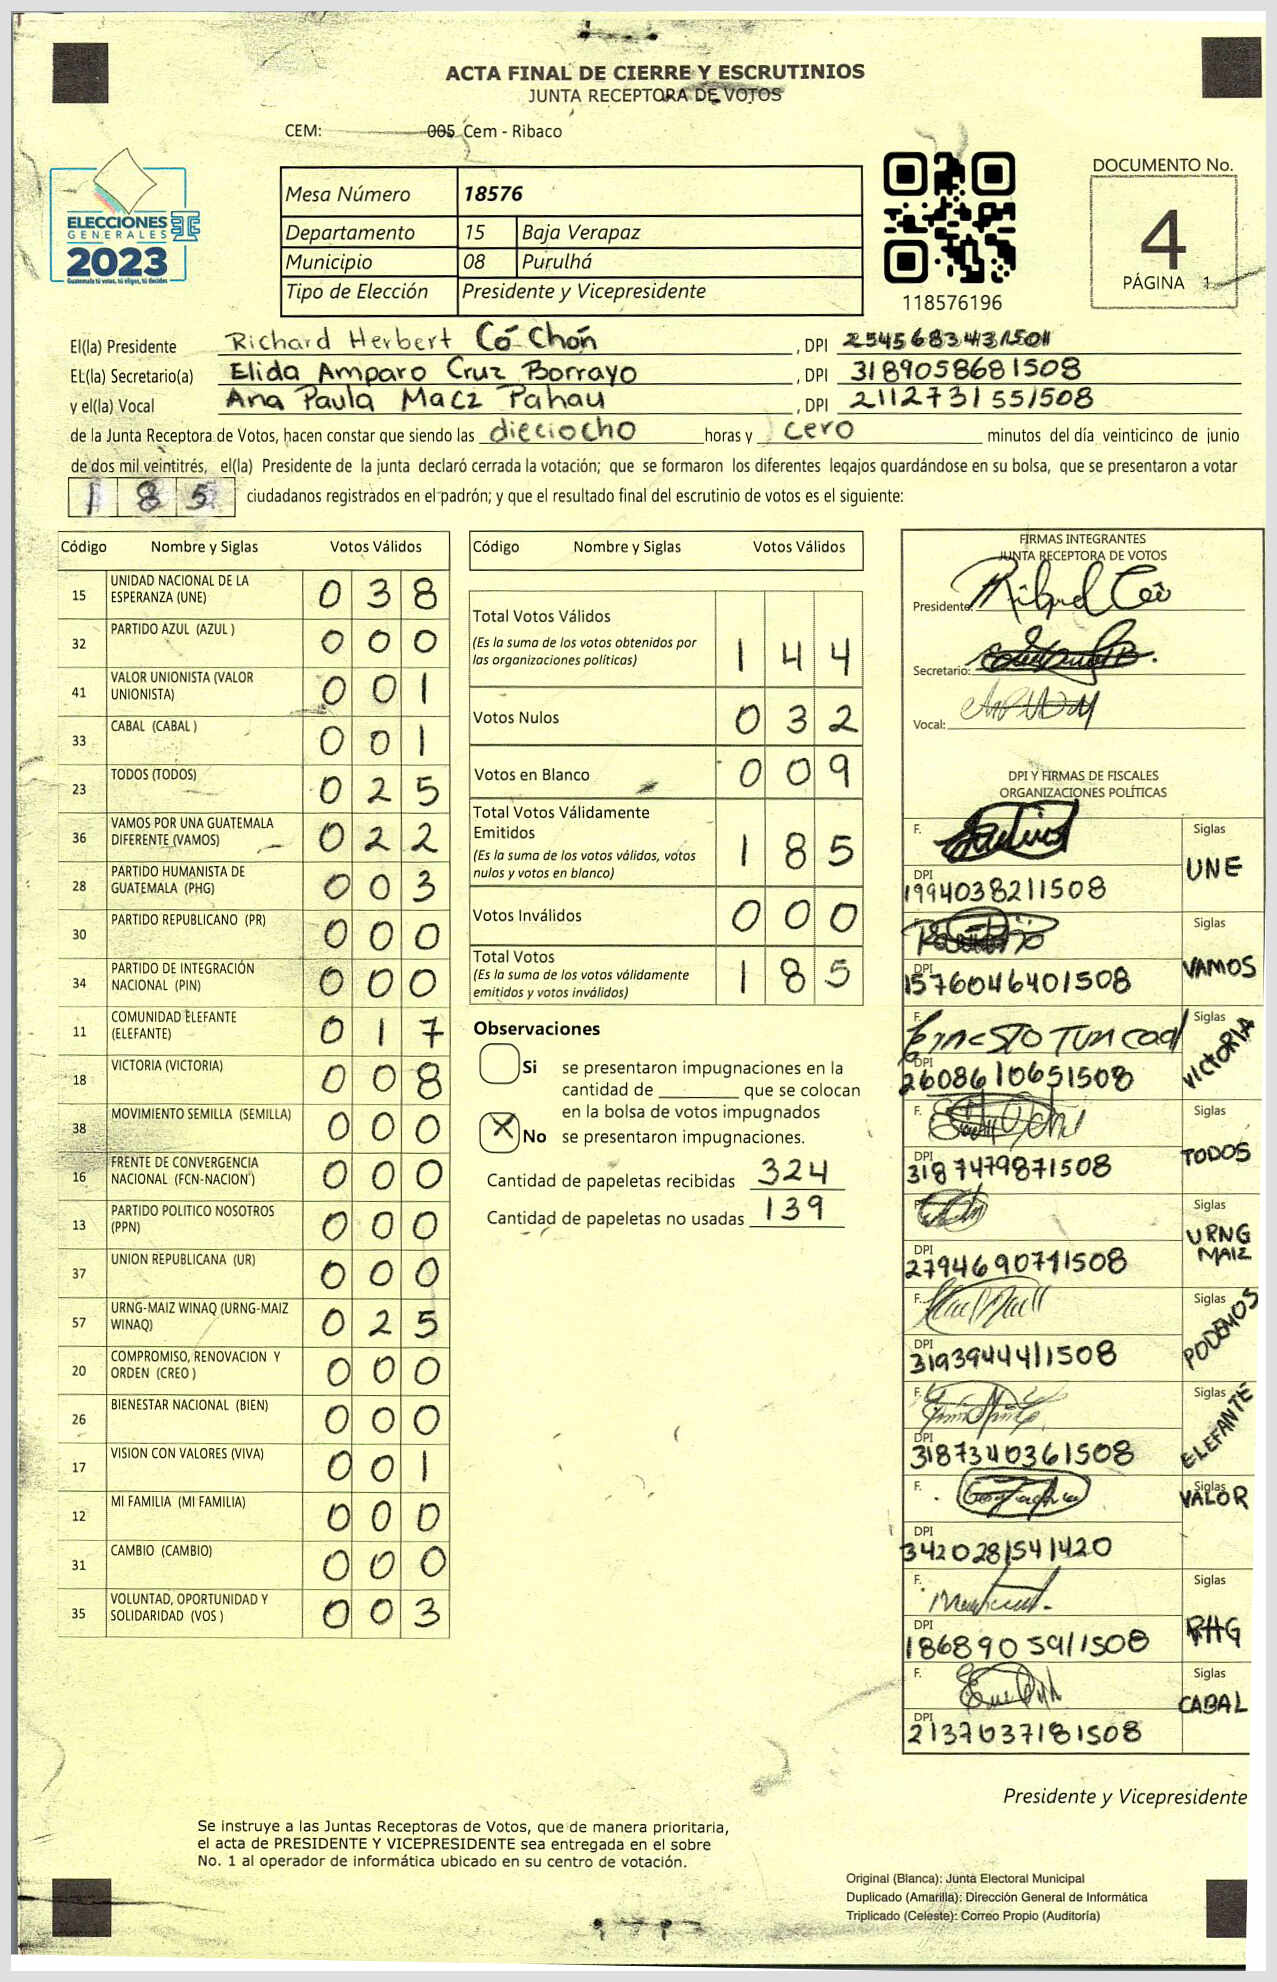 ACTA FINAL DE CIERRE Y ESCRUTINIOS
JUNTA RECEPTORA DE VOTOS
CEM: 005 Cem - Ribaco
ELECCIONES
GENERALES
2023
Guatemala tú votas, tú eliges, tú decides
Mesa Número 18576
Departamento 15 Baja Verapaz
Municipio 08 Purulhá
Tipo de Elección Presidente y Vicepresidente
118576196
DOCUMENTO No.
4
PÁGINA 1
El(la) Presidente Richard Herbert Có Chón , DPI
EL(la) Secretario(a) Elida Amparo Cruz Borrayo , DPI 3189058681508
y el(la) Vocal Ana Paula Macz Pahau , DPI 2112731551508
de la Junta Receptora de Votos, hacen constar que siendo las dieciocho horas y cero minutos del día veinticinco de junio
de dos mil veintitrés, el(la) Presidente de la junta declaró cerrada la votación; que se formaron los diferentes legajos guardándose en su bolsa, que se presentaron a votar
185 ciudadanos registrados en el padrón; y que el resultado final del escrutinio de votos es el siguiente:
Código Nombre y Siglas Votos Válidos
15 UNIDAD NACIONAL DE LA ESPERANZA (UNE) 038
32 PARTIDO AZUL (AZUL ) 000
41 VALOR UNIONISTA (VALOR UNIONISTA) 001
33 CABAL (CABAL ) 001
23 TODOS (TODOS) 025
36 VAMOS POR UNA GUATEMALA DIFERENTE (VAMOS) 022
28 PARTIDO HUMANISTA DE GUATEMALA (PHG) 003
30 PARTIDO REPUBLICANO (PR) 000
34 PARTIDO DE INTEGRACIÓN NACIONAL (PIN) 000
11 COMUNIDAD ELEFANTE (ELEFANTE) 017
18 VICTORIA (VICTORIA) 008
38 MOVIMIENTO SEMILLA (SEMILLA) 000
16 FRENTE DE CONVERGENCIA NACIONAL (FCN-NACION) 000
13 PARTIDO POLITICO NOSOTROS (PPN) 000
37 UNION REPUBLICANA (UR) 000
57 URNG-MAIZ WINAQ (URNG-MAIZ WINAQ) 025
20 COMPROMISO, RENOVACION Y ORDEN (CREO ) 000
26 BIENESTAR NACIONAL (BIEN) 000
17 VISION CON VALORES (VIVA) 001
12 MI FAMILIA (MI FAMILIA) 000
31 CAMBIO (CAMBIO) 000
35 VOLUNTAD, OPORTUNIDAD Y SOLIDARIDAD (VOS ) 003
Código Nombre y Siglas Votos Válidos
Total Votos Válidos 144
(Es la suma de los votos obtenidos por
las organizaciones políticas)
Votos Nulos 032
Votos en Blanco 009
Total Votos Válidamente
Emitidos 185
(Es la suma de los votos válidos, votos
nulos y votos en blanco)
Votos Inválidos 000
Total Votos 185
(Es la suma de los votos válidamente
emitidos y votos inválidos)
Observaciones
Si se presentaron impugnaciones en la
cantidad de ________ que se colocan
en la bolsa de votos impugnados
X No se presentaron impugnaciones.
Cantidad de papeletas recibidas 324
Cantidad de papeletas no usadas 139
FIRMAS INTEGRANTES
JUNTA RECEPTORA DE VOTOS
Presidente:
Secretario:
Vocal:
DPI Y FIRMAS DE FISCALES
ORGANIZACIONES POLÍTICAS
F. Siglas UNE
DPI 1994038211508
F. Siglas VAMOS
DPI 1576046401508
F. Ernesto Tun Siglas VICTORIA
DPI 2608610651508
F. Siglas TODOS
DPI 3187479871508
F. Siglas URNG MAIZ
DPI 2794690791508
F. Siglas PODEMOS
DPI 3193944411508
F. Siglas ELEFANTE
DPI 3187340361508
F. Siglas VALOR
DPI 3420281541420
F. Siglas PHG
DPI 1868905911508
F. Siglas CABAL
DPI 2137037181508
Presidente y Vicepresidente
Se instruye a las Juntas Receptoras de Votos, que de manera prioritaria,
el acta de PRESIDENTE Y VICEPRESIDENTE sea entregada en el sobre
No. 1 al operador de informática ubicado en su centro de votación.
Original (Blanca): Junta Electoral Municipal
Duplicado (Amarilla): Dirección General de Informática
Triplicado (Celeste): Correo Propio (Auditoría)